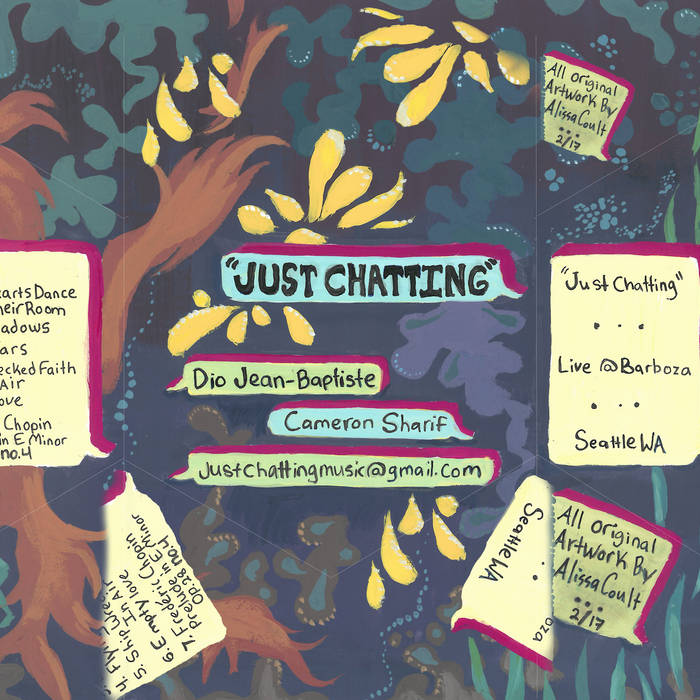 All Original
Artwork By
Alissa Coult
2/17
"JUST CHATTING"
Dio Jean-Baptiste
Cameron Sharif
JustChattingmusic@gmail.com
earts Dance
heir Room
adows
ars
ecked Faith
Air
ove
Chopin
in E Minor
no.4
"Just Chatting"
Live @Barboza
Seattle WA
4. Fly
5. Ship Wre
In Air
6. Empty love
7. Frederic Chopin
prelude in E Minor
OP. 28 no.4
Seattle WA
oza
All Original
Artwork By
Alissa Coult
2/17